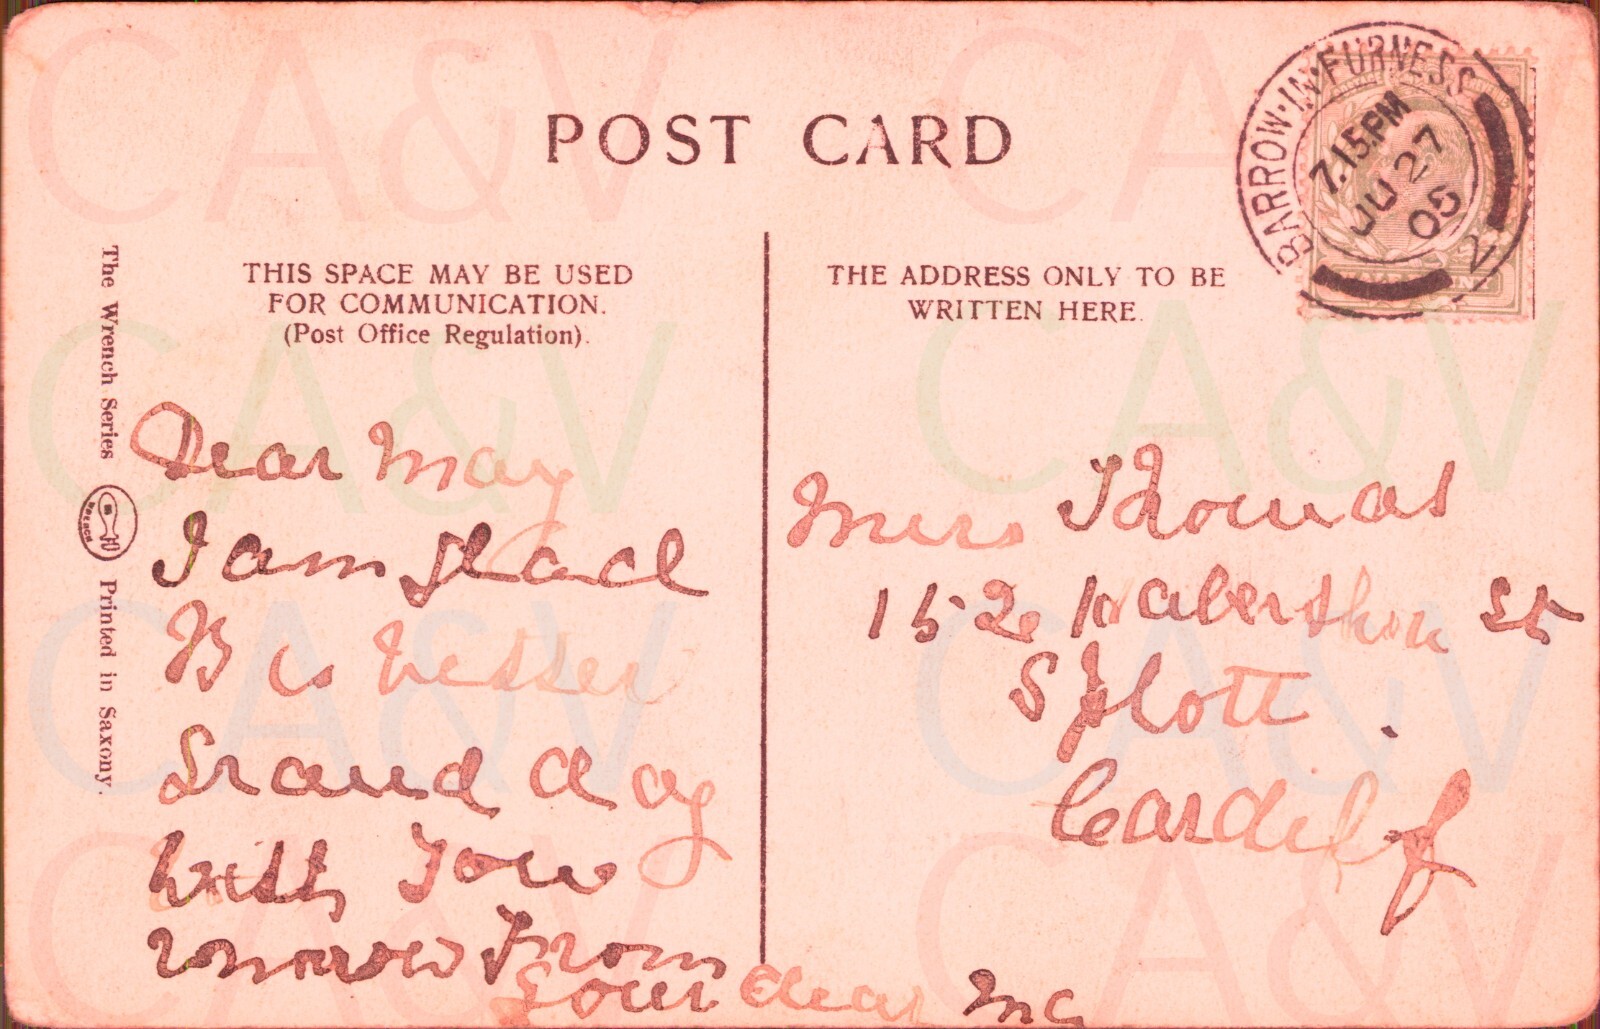 POST CARD
BARROW·IN·FURNESS
7.15.PM
JU 27
05
2
THIS SPACE MAY BE USED
FOR COMMUNICATION.
(Post Office Regulation).
THE ADDRESS ONLY TO BE
WRITTEN HERE.
The Wrench Series
WRENCH
Printed in Saxony.
Dear May
I am glad
B is better
Grand day
with you
morrow From
Your dear
Thomas
152 Habershon St
Splott
Cardiff
CA&V
CA&V
CA&V
CA&V
CA&V
CA&V
CA&V
CA&V